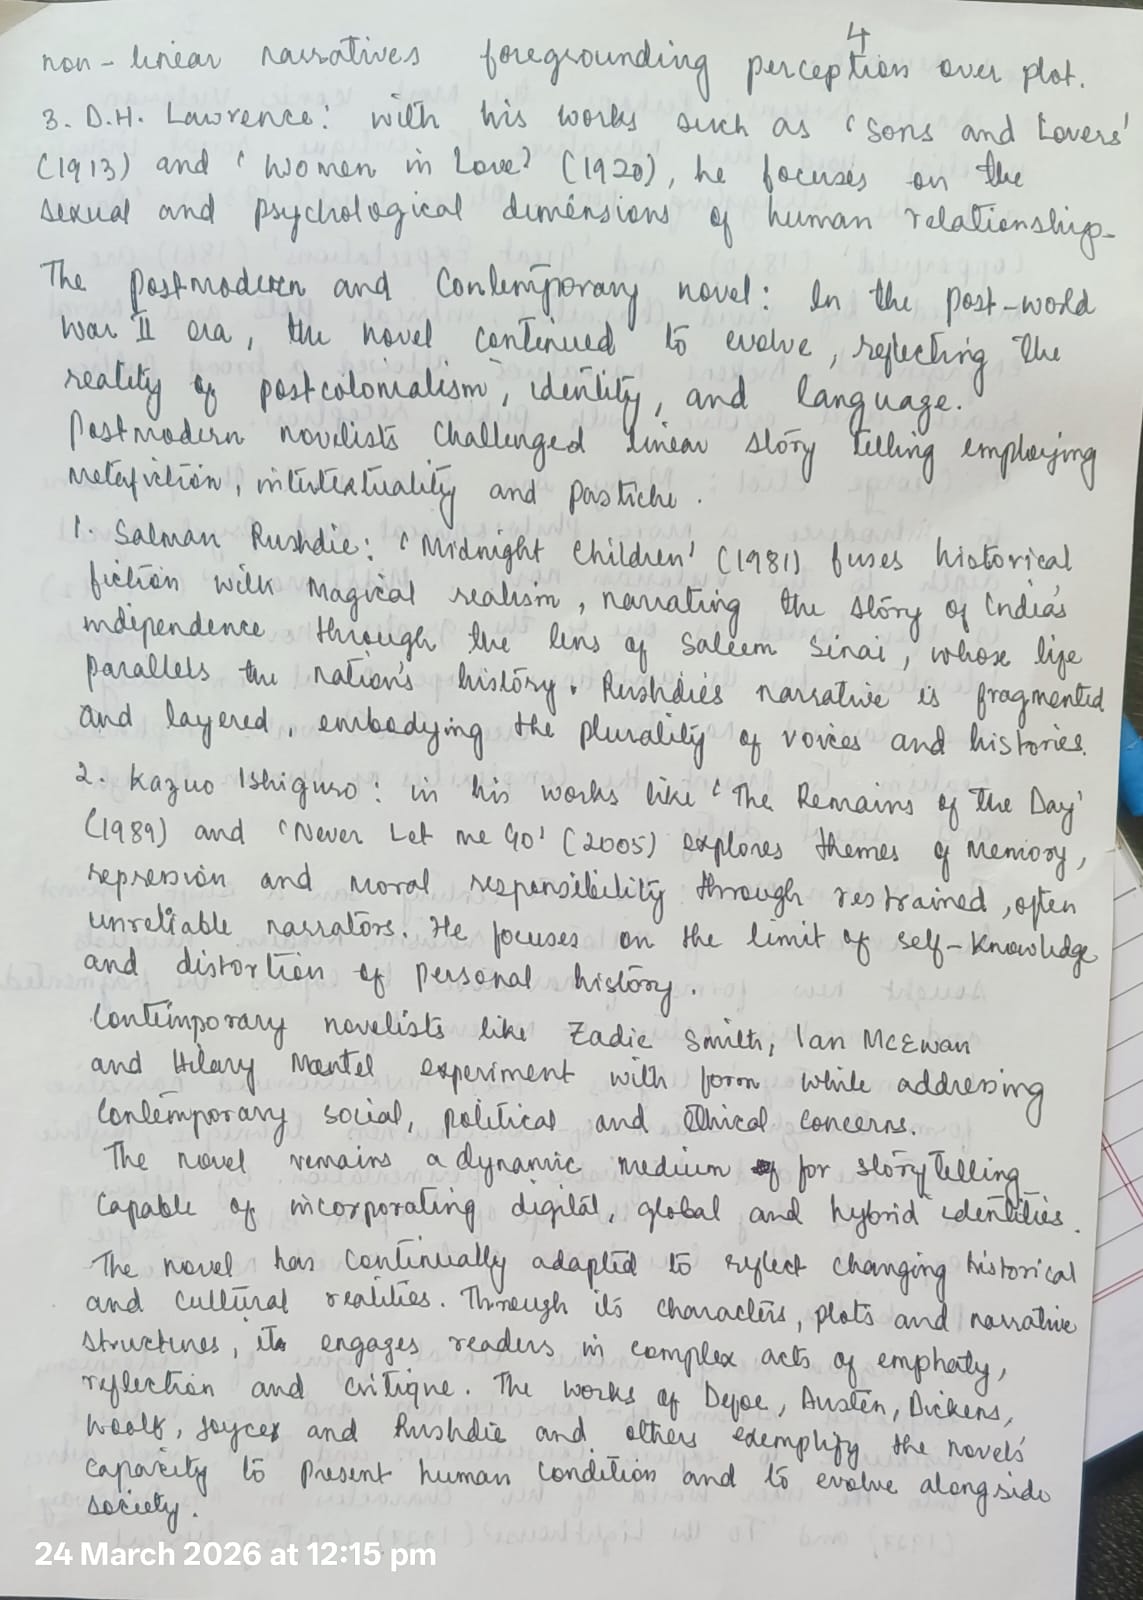 4
non-linear narratives foregrounding perception over plot.
3. D.H. Lawrence: with his works such as 'Sons and Lovers'
(1913) and 'Women in Love' (1920), he focuses on the
sexual and psychological dimensions of human relationship.
The postmodern and Contemporary novel: In the post-world
war II era, the novel continued to evolve, reflecting the
reality of postcolonialism, identity, and language.
Postmodern novelists challenged linear story telling employing
metafiction, intertextuality and pastiche.
1. Salman Rushdie: 'Midnight Children' (1981) fuses historical
fiction with magical realism, narrating the story of India's
independence through the lens of Saleem Sinai, whose life
parallels the nation's history. Rushdie's narrative is fragmented
and layered, embodying the plurality of voices and histories.
2. Kazuo Ishiguro: in his works like 'The Remains of the Day'
(1989) and 'Never Let me Go' (2005) explores themes of memory,
repression and moral responsibility through restrained, often
unreliable narrators. He focuses on the limit of self-knowledge
and distortion of personal history.
Contemporary novelists like Zadie Smith, Ian McEwan
and Hilary Mantel experiment with form while addressing
contemporary social, political and ethical concerns.
The novel remains a dynamic medium for story telling
capable of incorporating digital, global and hybrid identities.
The novel has continually adapted to reflect changing historical
and cultural realities. Through its characters, plots and narrative
structures, it engages readers in complex acts of emphaty,
reflection and critique. The works of Defoe, Austen, Dickens,
Woolf, Joyce and Rushdie and others exemplify the novel's
capacity to present human condition and to evolve alongside
society.
24 March 2026 at 12:15 pm